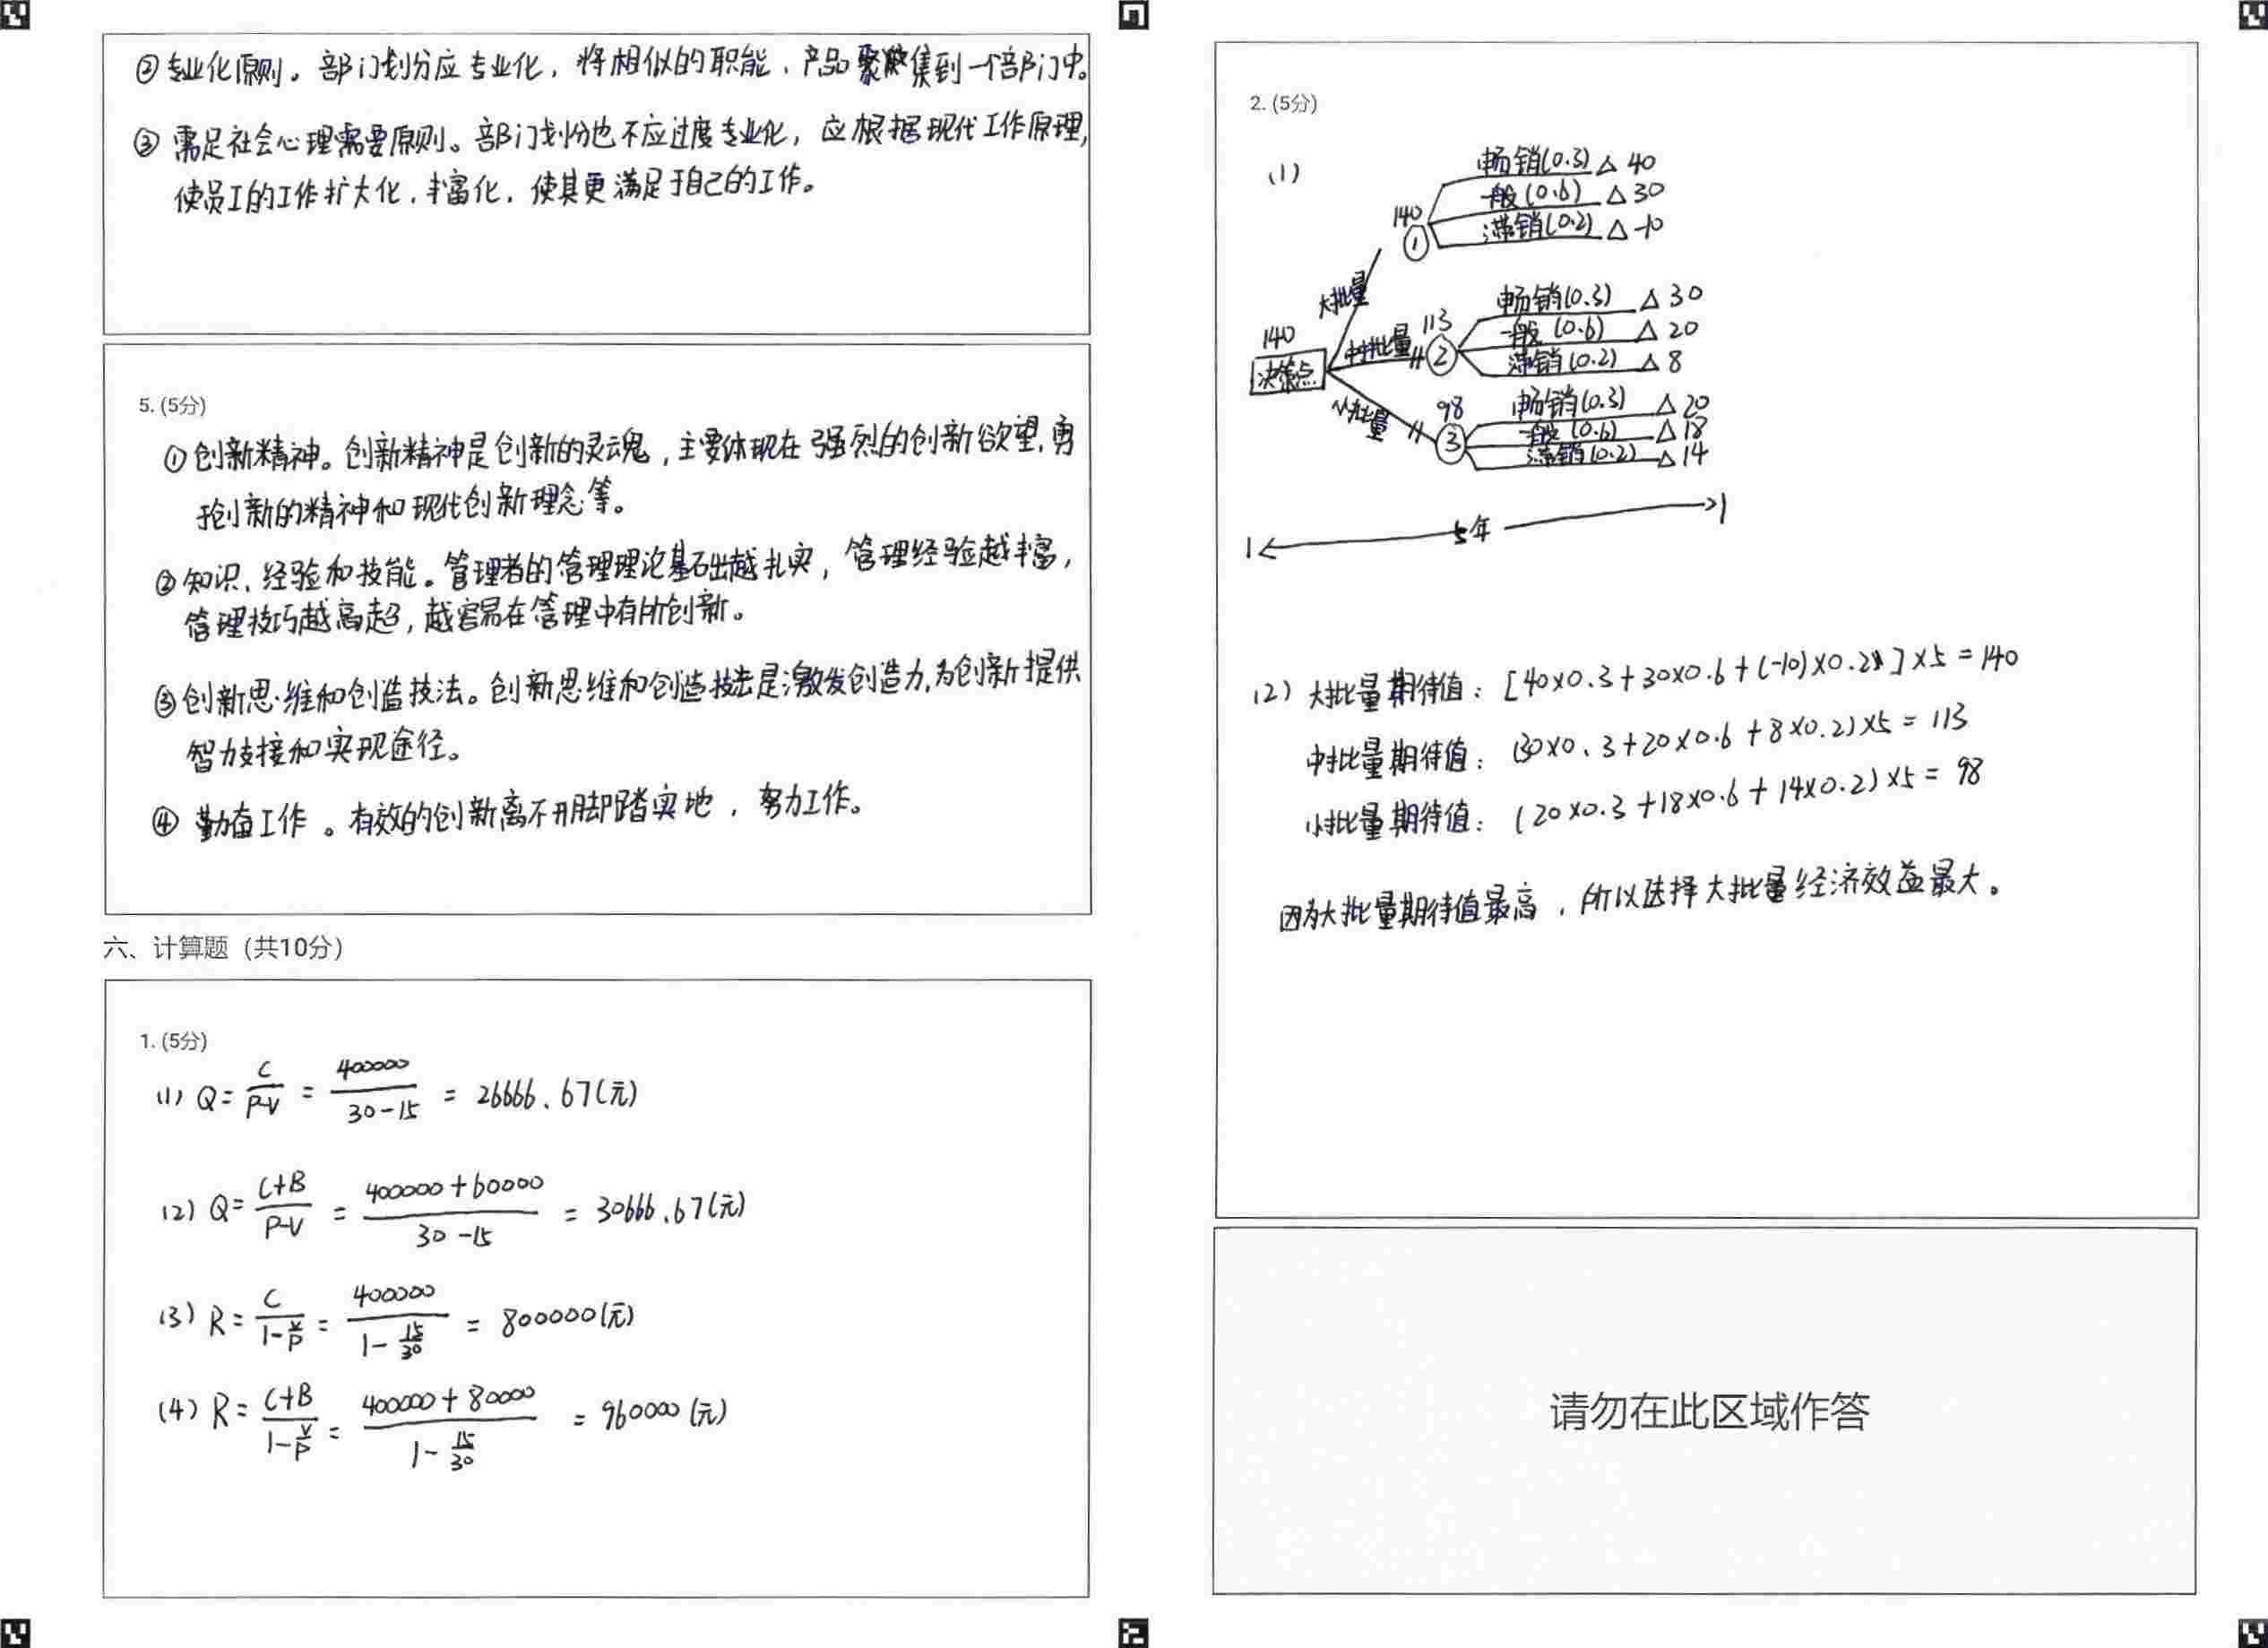 ②专业化原则。部门划分应专业化，将相似的职能、产品聚集到一个部门中。
③需足社会心理需要原则。部门划分也不应过度专业化，应根据现代工作原理，
使员工的工作扩大化，丰富化，使其更满足于自己的工作。
5. (5分)
①创新精神。创新精神是创新的灵魂，主要体现在强烈的创新欲望，勇
于创新的精神和现代创新理念等。
②知识、经验和技能。管理者的管理理论基础越扎实，管理经验越丰富，
管理技巧越高超，越容易在管理中有所创新。
③创新思维和创造技法。创新思维和创造技法是激发创造力，为创新提供
智力支接和实现途径。
④勤奋工作。有效的创新离不开脚踏实地，努力工作。
六、计算题（共10分）
1. (5分)
(1) Q=C/(P-V) = 400000/(30-15) = 26666.67(元)
(2) Q=(C+B)/(P-V) = (400000+60000)/(30-15) = 30666.67(元)
(3) R=C/(1-V/P) = 400000/(1-15/30) = 800000(元)
(4) R=(C+B)/(1-V/P) = (400000+80000)/(1-15/30) = 960000(元)
2. (5分)
(1)
畅销(0.3) △ 40
一般(0.6) △ 30
滞销(0.2) △ -10
140
①
大批量
畅销(0.3) △ 30
一般(0.6) △ 20
滞销(0.2) △ 8
113
②
中批量
140
决策点
畅销(0.3) △ 20
一般(0.6) △ 18
滞销(0.2) △ 14
98
③
小批量
5年
(2) 大批量期待值：[40×0.3+30×0.6+(-10)×0.2]×5=140
中批量期待值：(30×0.3+20×0.6+8×0.2)×5=113
小批量期待值：(20×0.3+18×0.6+14×0.2)×5=98
因为大批量期待值最高，所以选择大批量经济效益最大。
请勿在此区域作答